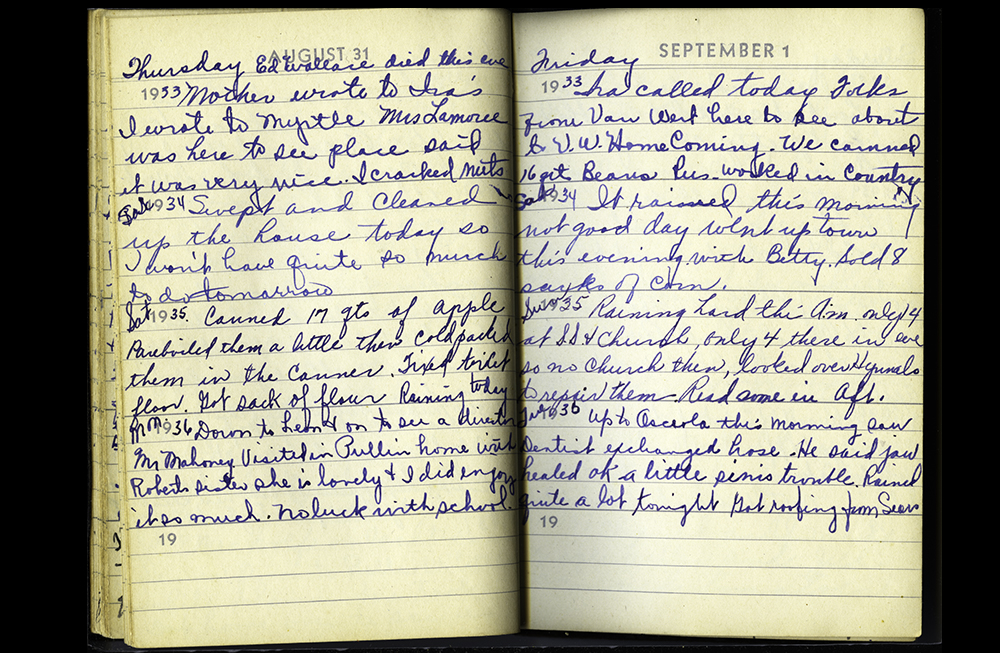 AUGUST 31
Thursday Ed Wallace died this eve
1933 Mother wrote to Ira's
I wrote to Myrtle Mrs Lamoree
was here to see place said
it was very nice. I cracked nuts
1934 Swept and Cleaned
up the house today so
I won't have quite so much
to do tomorrow
Sat 1935. Canned 17 qts of apple
Parboiled them a little then coldpacked
them in the Canner. Fixed toilet
floor. Got sack of flour Raining today
Mon 1936 Down to & on to see a director
Mr Mahoney Visited in Pullin home with
Roberts sister she is lovely & I did enjoy
it so much. No luck with school.
19
SEPTEMBER 1
Friday
1933 Ira called today Folks
from Van Wert here to see about
V.W. HomeComing. We canned
16 qt Beans Rus. worked in Country
Sat 1934 It rained this morning
not good day went up town
this evening with Betty. Sold 8
sacks of Corn.
Sun 1935 Raining hard this A.m. only 14
at S.S & Church, only 4 there in eve
so no Church then, looked over Hymnals
to repair them Read some in Aft.
Tue 1936 Up to Osceola this morning saw
Dentist exchanged hose. He said jaw
healed ok a little sinis trouble. Rained
quite a lot tonight Got roofing from Sears
19